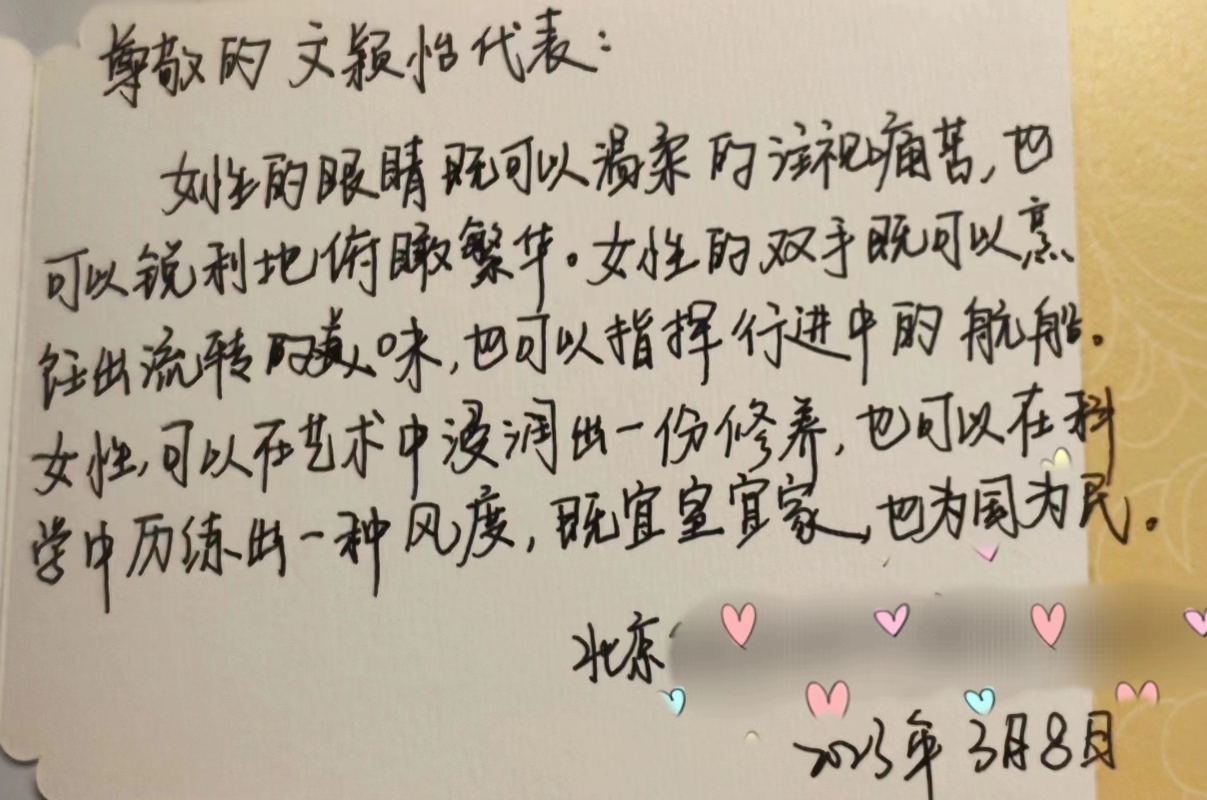 尊敬的文颖怡代表：
女性的眼睛既可以温柔的注视痛苦，也
可以锐利地俯瞰繁华。女性的双手既可以烹
饪出流转的美味，也可以指挥行进中的航船。
女性，可以在艺术中浸润出一份修养，也可以在科
学中历练出一种风度，既宜室宜家，也为国为民。
北京
2023年3月8日